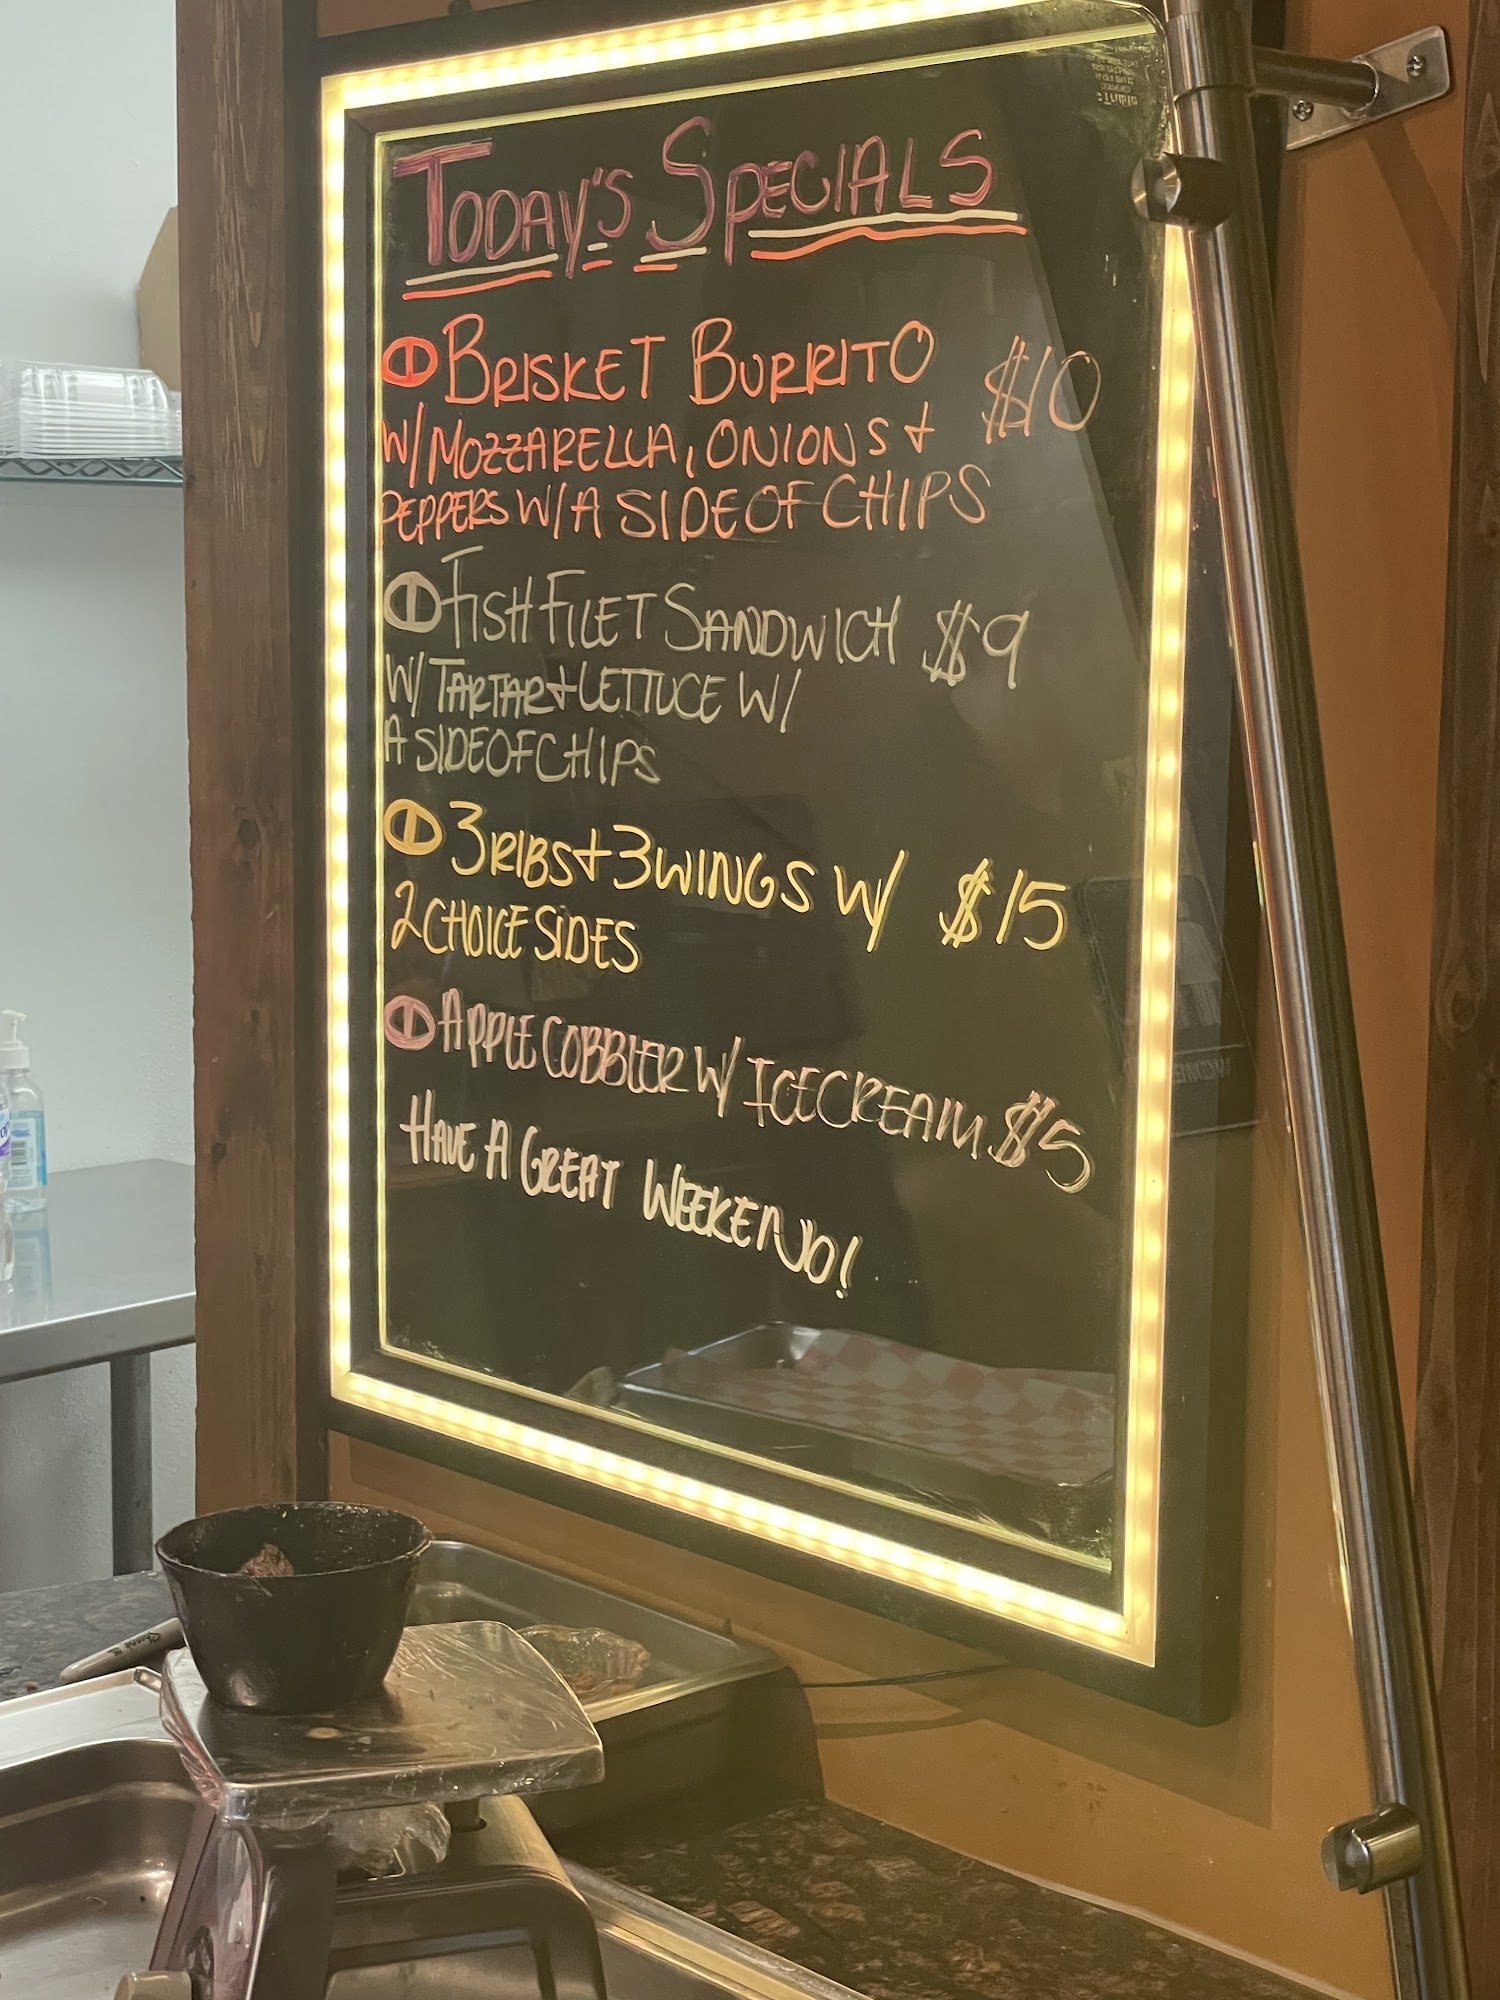 TODAY'S SPECIALS
① BRISKET BURRITO $10
W/MOZZARELLA, ONIONS &
PEPPERS W/A SIDE OF CHIPS
① FISH FILET SANDWICH $9
W/ TARTAR & LETTUCE W/
A SIDE OF CHIPS
① 3 RIBS & 3 WINGS W/ $15
2 CHOICE SIDES
① APPLE COBBLER W/ ICE CREAM $5
HAVE A GREAT WEEKEND!